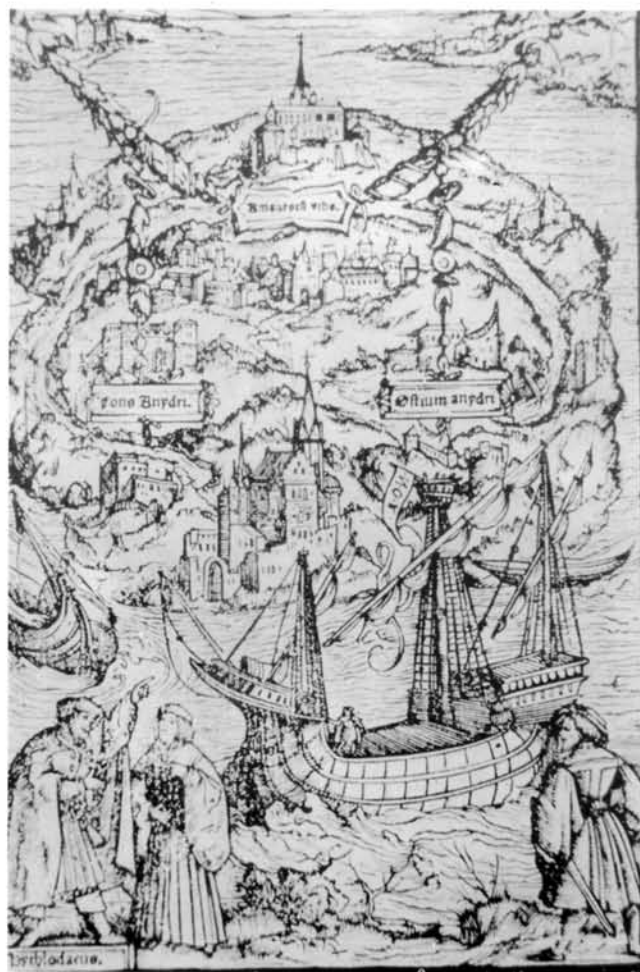 Amaurotū vrbs.
Fons Anydri.
Ostium anydri
Hythlodaeus.